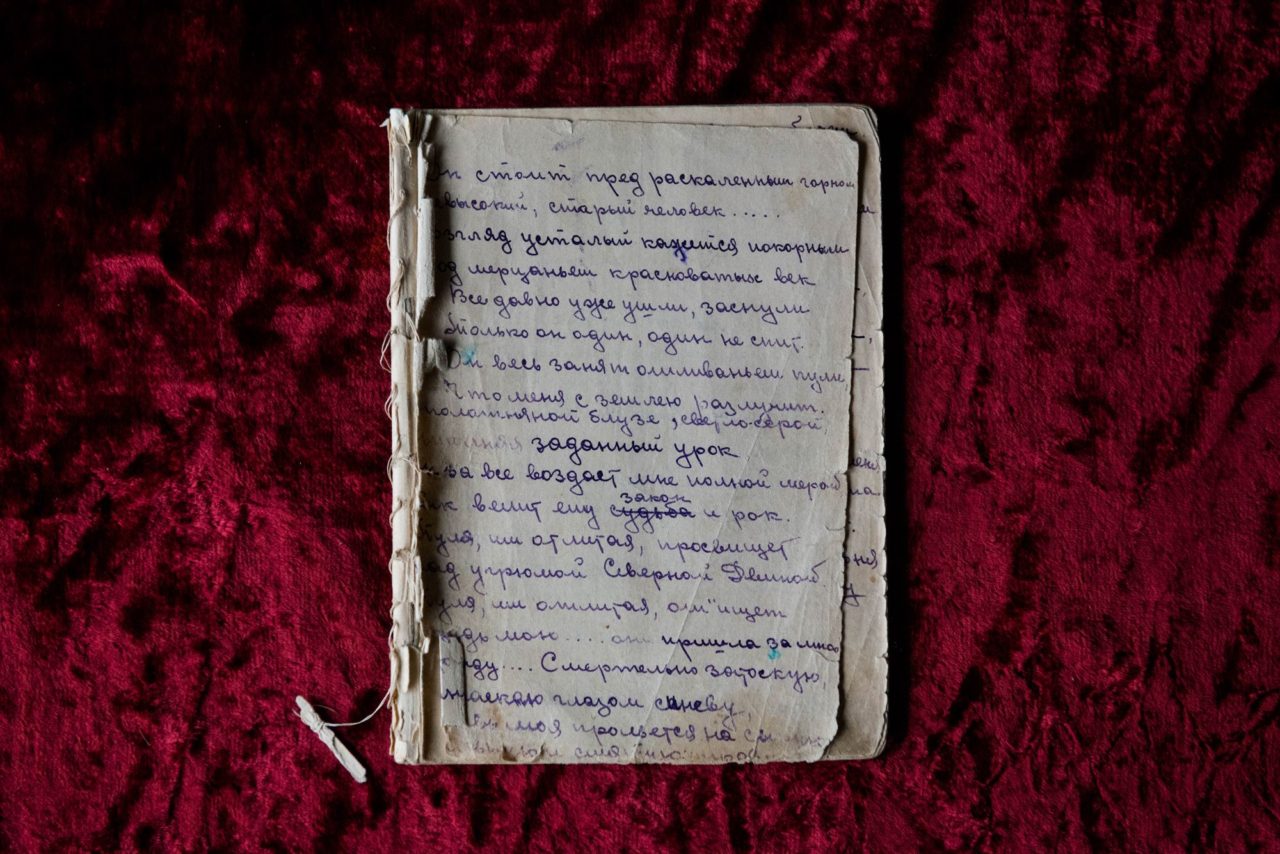 н стоит пред раскаленным горном
евысокий, старый человек.....
взгляд усталый кажется покорным
од мерцаньем красноватых век
Все давно уже ушли, заснули
только он один, один не спит.
Он весь занят отливаньем пули
Что меня с землею разлучит.
полотняной блузе, светло-серой
заданный урок
за все воздаст мне полной мерой
ак велит ему судьба закон и рок.
пуля, им отлитая, просвищет
ад угрюмой Северной Двиной
пуля, им отлитая, отыщет
удь мою..... она пришла за мной
аду.... Смертельно затоскую,
глазом синеву,
моя прольется на